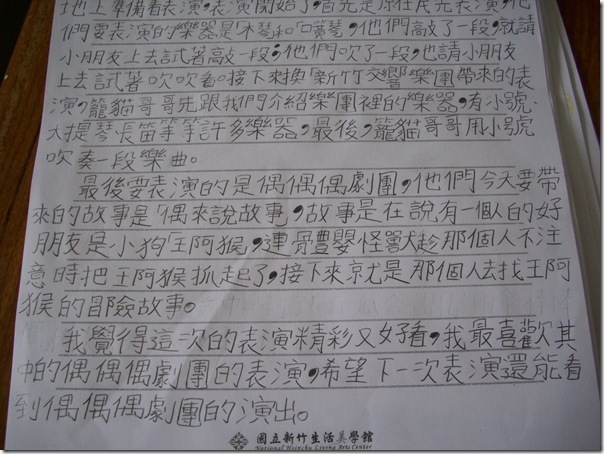 地上準備看表演,表演開始了,首先是原住民先表演,他
們要表演的樂器是「木琴」和「口簧琴」,他們敲了一段,就請
小朋友上去試著敲一段;他們吹了一段,也請小朋友
上去試著吹吹看。接下來換「新竹交響樂團」帶來的表
演,龍貓哥哥先跟我們介紹樂團裡的樂器,有小號、
大提琴、長笛等等許多樂器,最後,龍貓哥哥用小號
吹奏一段樂曲。
最後要表演的是偶偶偶劇團,他們今天要帶
來的故事是「偶來說故事」,故事是在說,有一個人的好
朋友是小狗「王阿猴」,連體嬰怪獸趁那個人不注
意時把王阿猴抓起了,接下來就是那個人去找王阿
猴的冒險故事。
我覺得這一次的表演精彩又好看,我最喜歡其
中的偶偶偶劇團的表演,希望下一次表演還能看
到偶偶偶劇團的演出。
國立新竹生活美學館
National Hsinchu Living Arts Center